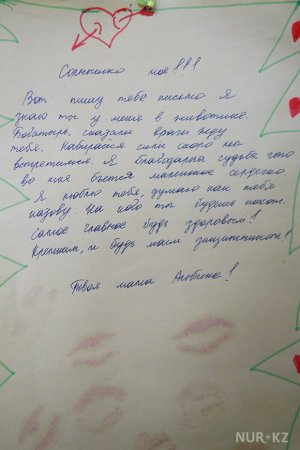 Солнышко мое!!!
Вот пишу тебе письмо. Я
знаю ты у меня в животике.
Богатырь, сказали врачи. Жду
тебя. Набирайся силы скоро мы
встретимся. Я благодарна судьбе что
во мне бьется маленькое сердечко.
Я люблю тебя, думаю как тебя
назову. На кого ты будешь похож.
Самое главное будь здоровым!
Крепким, и будь моим защитником!
Твоя мама
NUR.KZ